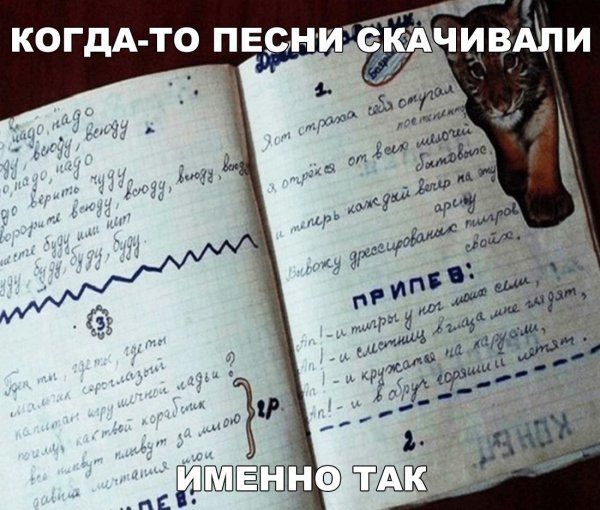 КОГДА-ТО ПЕСНИ СКАЧИВАЛИ
надо, надо
всюду, всюду
надо, надо
верить чуду
всюду, всюду, всюду, всюду
вместе буду или нет
буду, буду, буду.
3
Где ты, где ты, где ты
мальчик сероглазый
капитан игрушечной ладьи?
как твой кораблик
всё плывут плывут за мною
давние мечтания мои
2р.
1.
Я от страха себя отучал
постепенно
я отрёкся от всех мелочей
бытовых
и теперь каждый вечер на эту
арену
Вывожу дрессированных тигров
своих.
ПРИПЕВ:
Ап! - и тигры у ног моих сели,
Ап! - и с лестниц в глаза мне глядят,
Ап! - и кружатся на карусели,
Ап! - и в обруч горящий летят.
2.
ИМЕННО ТАК